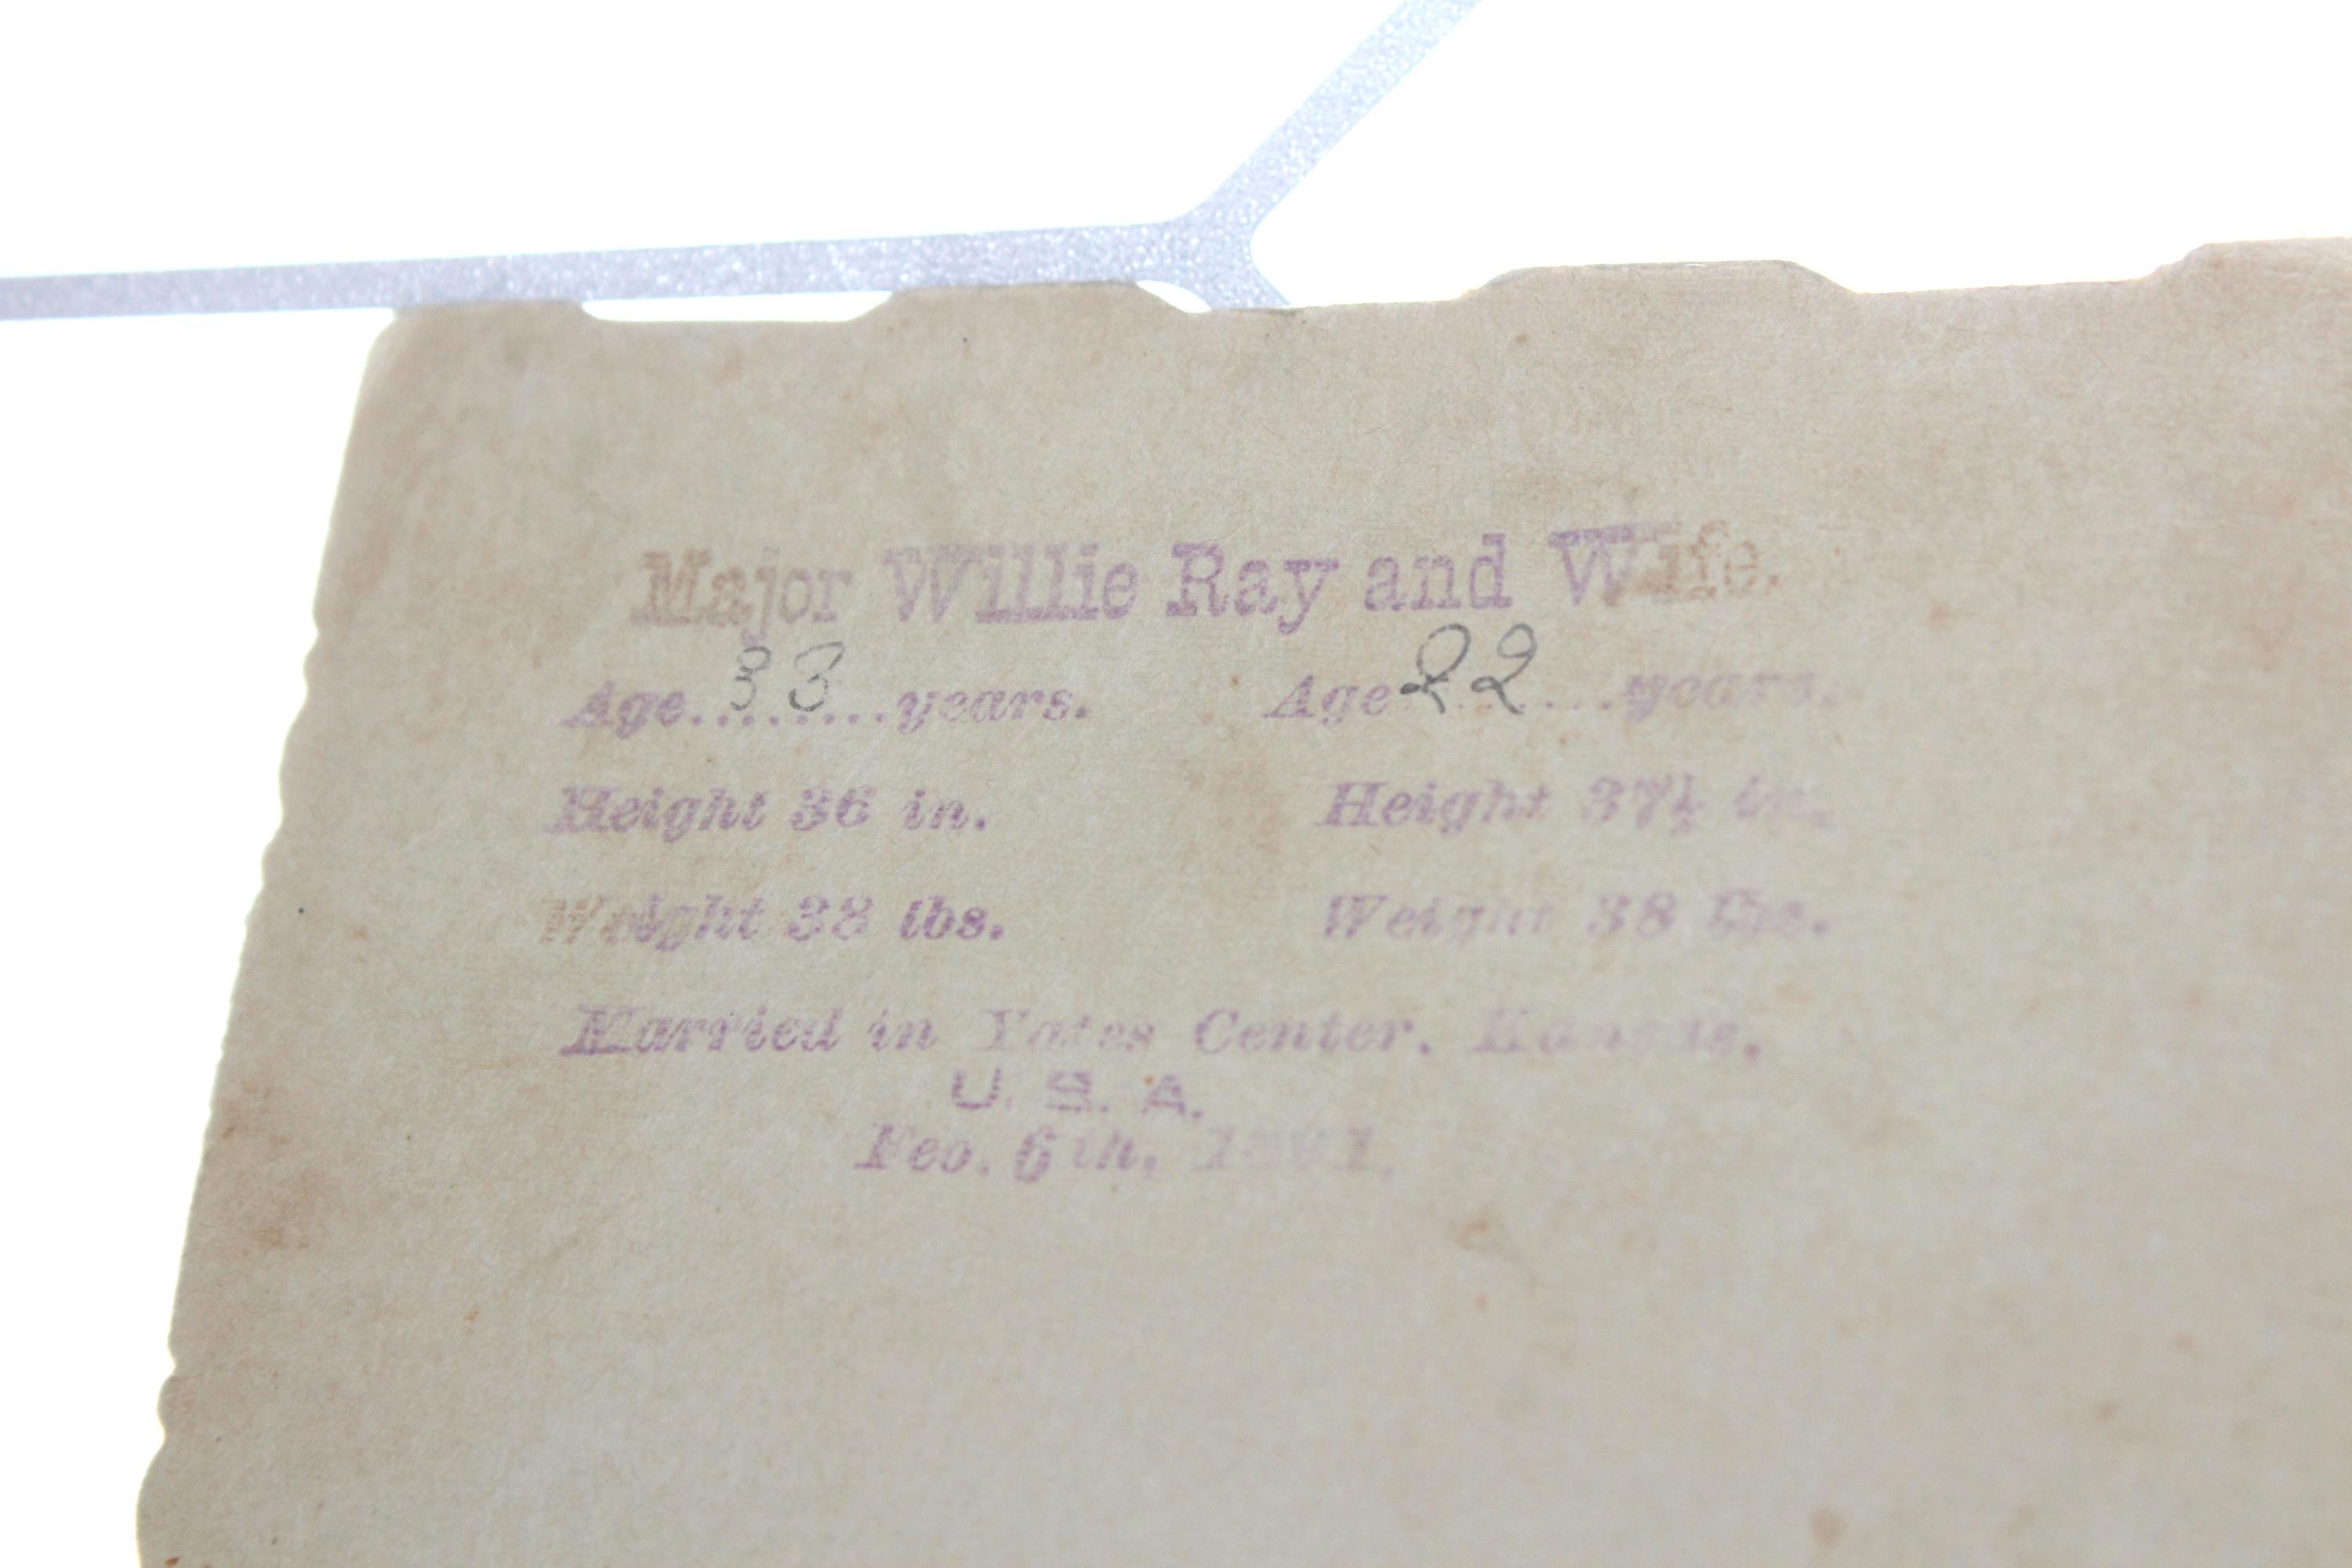 Major Willie Ray and Wife.
Age..33......years. Age 22....years.
Height 36 in. Height 37½ in.
Weight 38 lbs. Weight 38 lbs.
Married in Yates Center, Kansas,
U. S. A.
Feb. 6th,